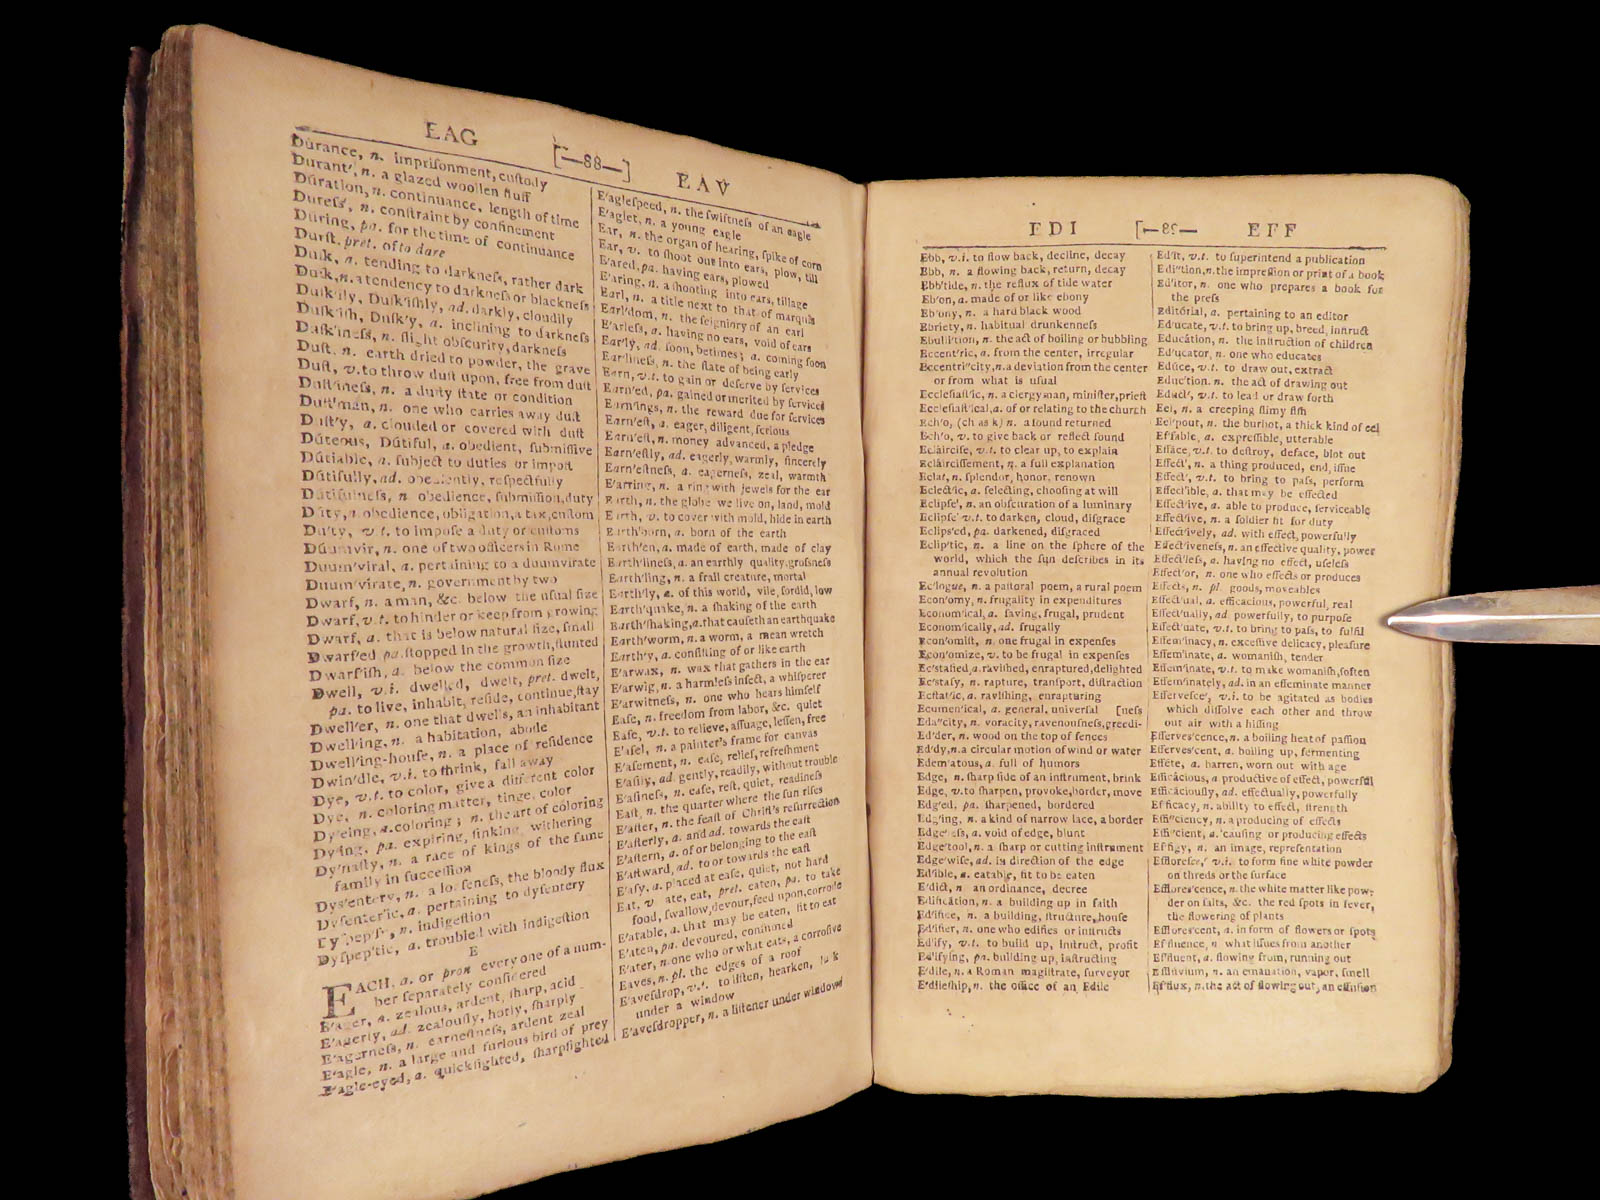 EAG [—88—] EAV
Dúrance, n. impriſonment, cuſtody
Durant', n. a glazed woollen ſtuff
Dúration, n. continuance, length of time
Dureſs', n. conſtraint by confinement
Dúring, pa. for the time of continuance
Durſt, pret. of to dare
Duſk, a. tending to darkneſs, rather dark
Duſk, n. a tendency to darkneſs or blackneſs
Duſk'ily, Duſk'iſhly, ad. darkly, cloudily
Duſk'iſh, Duſk'y, a. inclining to darkneſs
Duſk'ineſs, n. ſlight obſcurity, darkneſs
Duſt, n. earth dried to powder, the grave
Duſt, v.t. to throw duſt upon, free from duſt
Duſt'ineſs, n. a duſty ſtate or condition
Duſt'man, n. one who carries away duſt
Duſt'y, a. clouded or covered with duſt
Dúteous, Dútiful, a. obedient, ſubmiſſive
Dútiable, a. ſubject to duties or impoſt
Dútifully, ad. obediently, reſpectfully
Dútifulneſs, n. obedience, ſubmiſſion, duty
Dúty, n. obedience, obligation, a tax, cuſtom
Du'ty, v.t. to impoſe a duty or cuſtoms
Duumvir, n. one of two officers in Rome
Duum'viral, a. pertaining to a duumvirate
Duum'virate, n. government by two
Dwarf, n. a man, &c. below the uſual ſize
Dwarf, v.t. to hinder or keep from growing
Dwarf, a. that is below natural ſize, ſmall
Dwarf'ed pa. ſtopped in the growth, ſtunted
Dwarf'iſh, a. below the common ſize
Dwell, v.i. dwelled, dwelt, pret. dwelt,
pa. to live, inhabit, reſide, continue, ſtay
Dwell'er, n. one that dwells, an inhabitant
Dwell'ing, n. a habitation, abode
Dwell'ing-houſe, n. a place of reſidence
Dwin'dle, v.i. to ſhrink, fall away
Dye, v.t. to color, give a different color
Dye, n. coloring matter, tinge, color
Dy'eing, a. coloring; n. the art of coloring
Dy'ing, pa. expiring, ſinking, withering
Dy'naſty, n. a race of kings of the ſame
family in ſucceſſion
Dys'entery, n. a looſeneſs, the bloody flux
Dyſenter'ic, a. pertaining to dyſentery
Dyſpep'ſy, n. indigeſtion
Dyſpep'tic, a. troubled with indigeſtion
E
EACH, a. or pron every one of a num-
ber ſeparately conſidered
E'ager, a. zealous, ardent, ſharp, acid
E'agerly, ad. zealouſly, hotly, ſharply
E'agerneſs, n. earneſtneſs, ardent zeal
E'agle, n. a large and furious bird of prey
E'agle-eyed, a. quickſighted, ſharpſighted
E'agleſpeed, n. the ſwiftneſs of an eagle
E'aglet, n. a young eagle
Ear, n. the organ of hearing, ſpike of corn
Ear, v. to ſhoot out into ears, plow, till
E'ared, pa. having ears, plowed
E'aring, n. a ſhooting into ears, tillage
Earl, n. a title next to that of marquis
Earl'dom, n. the ſeigniory of an earl
E'arleſs, a. having no ears, void of ears
Ear'ly, ad. ſoon, betimes; a. coming ſoon
Ear'lineſs, n. the ſtate of being early
Earn, v.t. to gain or deſerve by ſervices
Earn'ed, pa. gained or merited by ſervices
Earn'ings, n. the reward due for ſervices
Earn'eſt, a. eager, diligent, ſerious
Earn'eſt, n. money advanced, a pledge
Earn'eſtly, ad. eagerly, warmly, ſincerely
Earn'eſtneſs, a. eagerneſs, zeal, warmth
E'arring, n. a ring with jewels for the ear
Earth, n. the globe we live on, land, mold
Earth, v. to cover with mold, hide in earth
Earth'born, a. born of the earth
Earth'en, a. made of earth, made of clay
Earth'lineſs, a. an earthly quality, groſsneſs
Earth'ling, n. a frail creature, mortal
Earth'ly, a. of this world, vile, ſordid, low
Earth'quake, n. a ſhaking of the earth
Earth'ſhaking, a. that cauſeth an earthquake
Earth'worm, n. a worm, a mean wretch
Earth'y, a. conſiſting of or like earth
E'arwax, n. wax that gathers in the ear
E'arwig, n. a harmleſs inſect, a whiſperer
E'arwitneſs, n. one who hears himſelf
Eaſe, n. freedom from labor, &c. quiet
Eaſe, v.t. to relieve, aſſuage, leſſen, free
E'aſel, n. a painter's frame for canvas
E'aſement, n. eaſe, relief, refreſhment
E'aſily, ad. gently, readily, without trouble
E'aſineſs, n. eaſe, reſt, quiet, readineſs
Eaſt, n. the quarter where the ſun riſes
E'aſter, n. the feaſt of Chriſt's reſurrection
E'aſterly, a. and ad. towards the eaſt
E'aſtern, a. of or belonging to the eaſt
E'aſtward, ad. to or towards the eaſt
E'aſy, a. placed at eaſe, quiet, not hard
Eat, v ate, eat, pret. eaten, pa. to take
food, ſwallow, devour, feed upon, corrode
E'atable, a. that may be eaten, fit to eat
E'aten, pa. devoured, conſumed
E'ater, n. one who or what eats, a corroſive
Eaves, n. pl. the edges of a roof
E'aveſdrop, v.t. to liſten, hearken,
under a window
E'aveſdropper, n. a liſtener under windows
EDI [—89— EFF
Ebb, v.i. to flow back, decline, decay
Ebb, n. a flowing back, return, decay
Ebb'tide, n. the reflux of tide water
Eb'on, a. made of or like ebony
Eb'ony, n. a hard black wood
Ebriety, n. habitual drunkenneſs
Ebulli'tion, n. the act of boiling or bubbling
Eccent'ric, a. from the center, irregular
Eccentri''city, n. a deviation from the center
or from what is uſual
Eccleſiaſt'ic, n. a clergyman, miniſter, prieſt
Eccleſiaſt'ical, a. of or relating to the church
Ech'o, (ch as k) n. a ſound returned
Ech'o, v. to give back or reflect ſound
Eclàirciſe, v.t. to clear up, to explain
Eclàirciſſement, n. a full explanation
Eclat, n. ſplendor, honor, renown
Eclect'ic, a. ſelecting, chooſing at will
Eclipſe', n. an obſcuration of a luminary
Eclipſe' v.t. to darken, cloud, diſgrace
Eclips'ed, pa. darkened, diſgraced
Eclip'tic, n. a line on the ſphere of the
world, which the ſun deſcribes in its
annual revolution
Ec'logue, n. a paſtoral poem, a rural poem
Econ'omy, n. frugality in expenditures
Econom'ical, a. ſaving, frugal, prudent
Econom'ically, ad. frugally
Econ'omiſt, n. one frugal in expenſes
Econ'omize, v. to be frugal in expenſes
Ec'ſtaſied, a. raviſhed, enraptured, delighted
Ec'ſtaſy, n. rapture, tranſport, diſtraction
Ecſtat'ic, a. raviſhing, enrapturing
Ecumen'ical, a. general, univerſal [neſs
Eda''city, n. voracity, ravenouſneſs, greedi-
Ed'der, n. wood on the top of fences
Ed'dy, n. a circular motion of wind or water
Edem'atous, a. full of humors
Edge, n. ſharp ſide of an inſtrument, brink
Edge, v. to ſharpen, provoke, border, move
Edg'ed, pa. ſharpened, bordered
Edg'ing, n. a kind of narrow lace, a border
Edge'leſs, a. void of edge, blunt
Edge'tool, n. a ſharp or cutting inſtrument
Edge'wiſe, ad. in direction of the edge
Ed'ible, a. eatable, fit to be eaten
E'dict, n an ordinance, decree
Edificátion, n. a building up in faith
Ed'ifice, n. a building, ſtructure, houſe
Ed'ifier, n. one who edifies or inſtructs
Ed'ify, v.t. to build up, inſtruct, profit
Ed'ifying, pa. building up, inſtructing
E'dile, n. a Roman magiſtrate, ſurveyor
E'dileſhip, n. the office of an Edile
Ed'it, v.t. to ſuperintend a publication
Edi''tion, n. the impreſſion or print of a book
Ed'itor, n. one who prepares a book for
the preſs
Editórial, a. pertaining to an editor
Ed'ucate, v.t. to bring up, breed, inſtruct
Educátion, n. the inſtruction of children
Ed'ucator, n. one who educates
Edúce, v.t. to draw out, extract
Educ'tion, n. the act of drawing out
Educt', v.t. to lead or draw forth
Eel, n. a creeping ſlimy fiſh
Eel'pout, n. the burbot, a thick kind of eel
Ef'fable, a. expreſſible, utterable
Efface, v.t. to deſtroy, deface, blot out
Effect', n. a thing produced, end, iſſue
Effect', v.t. to bring to paſs, perform
Effect'ible, a. that may be effected
Effect'ive, a. able to produce, ſerviceable
Effect'ive, n. a ſoldier fit for duty
Effect'ively, ad. with effect, powerfully
Effect'iveneſs, n. an effective quality, power
Effect'leſs, a. having no effect, uſeleſs
Effect'or, n. one who effects or produces
Effects, n. pl. goods, moveables
Effect'ual, a. efficacious, powerful, real
Effect'ually, ad powerfully, to purpoſe
Effect'uate, v.t. to bring to paſs, to fulfil
Effem'inacy, n. exceſſive delicacy, pleaſure
Effem'inate, a. womaniſh, tender
Effem'inate, v.t. to make womaniſh, ſoften
Effem'inately, ad. in an effeminate manner
Efferveſce', v.i. to be agitated as bodies
which diſſolve each other and throw
out air with a hiſſing
Efferves'cence, n. a boiling heat of paſſion
Efferves'cent, a. boiling up, fermenting
Efféte, a. barren, worn out with age
Efficácious, a productive of effect, powerful
Efficáciouſly, ad. effectually, powerfully
Ef'ficacy, n. ability to effect, ſtrength
Effi''ciency, n. a producing of effects
Effi''cient, a. cauſing or producing effects
Ef'figy, n. an image, repreſentation
Effloreſce,' v.i. to form fine white powder
on threds or the ſurface
Efflores'cence, n. the white matter like pow-
der on ſalts, &c. the red ſpots in fever,
the flowering of plants
Efflores'cent, a. in form of flowers or ſpots
Ef'fluence, n what iſſues from another
Ef'fluent, a. flowing from, running out
Effluvium, n. an emanation, vapor, ſmell
Ef'flux, n. the act of flowing out, an effuſion